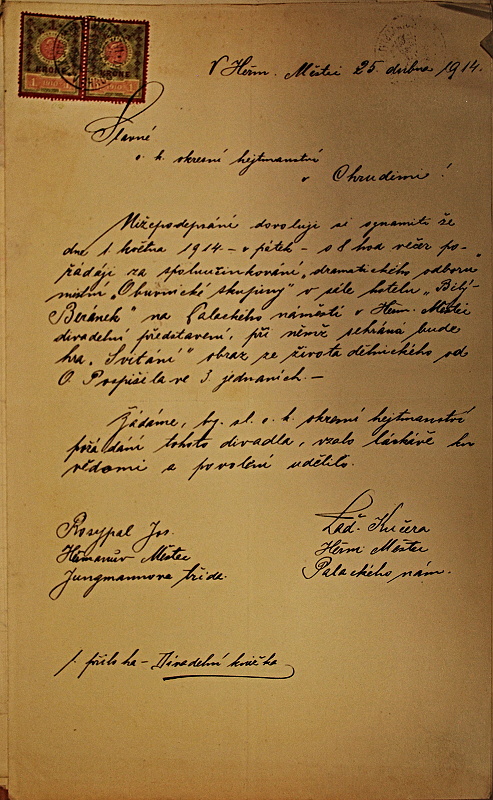 1 1
KRONE KRONE
1. 1910 1910 1
V Heřm. Městci 25. dubna 1914.
Slavné
c. k. okresní hejtmanství
v Chrudimi!
Nížepodepsaní dovolují si oznámiti že
dne 1. května 1914 - v pátek - o 8 hod večer po-
řádají za spoluúčinkování „dramatického odboru“
místní „Obuvnické skupiny“ v sále hotelu „Bílý
Beránek“ na Palackého náměstí v Heřm. Městci
divadelní představení, při němž sehrána bude
hra „Svítání“ obraz ze života dělnického od
O. Pospíšila ve 3. jednáních. —
Žádáme, by sl. c. k. okresní hejtmanství
pořádání tohoto divadla, vzalo láskavě ku
vědomí a povolení udělilo.
Rosypal Jos.
Heřmanův Městec
Jungmannova třída.
Lad. Kučera
Heřm Městec
Palackého nám.
1. příloha - Divadelní knížka